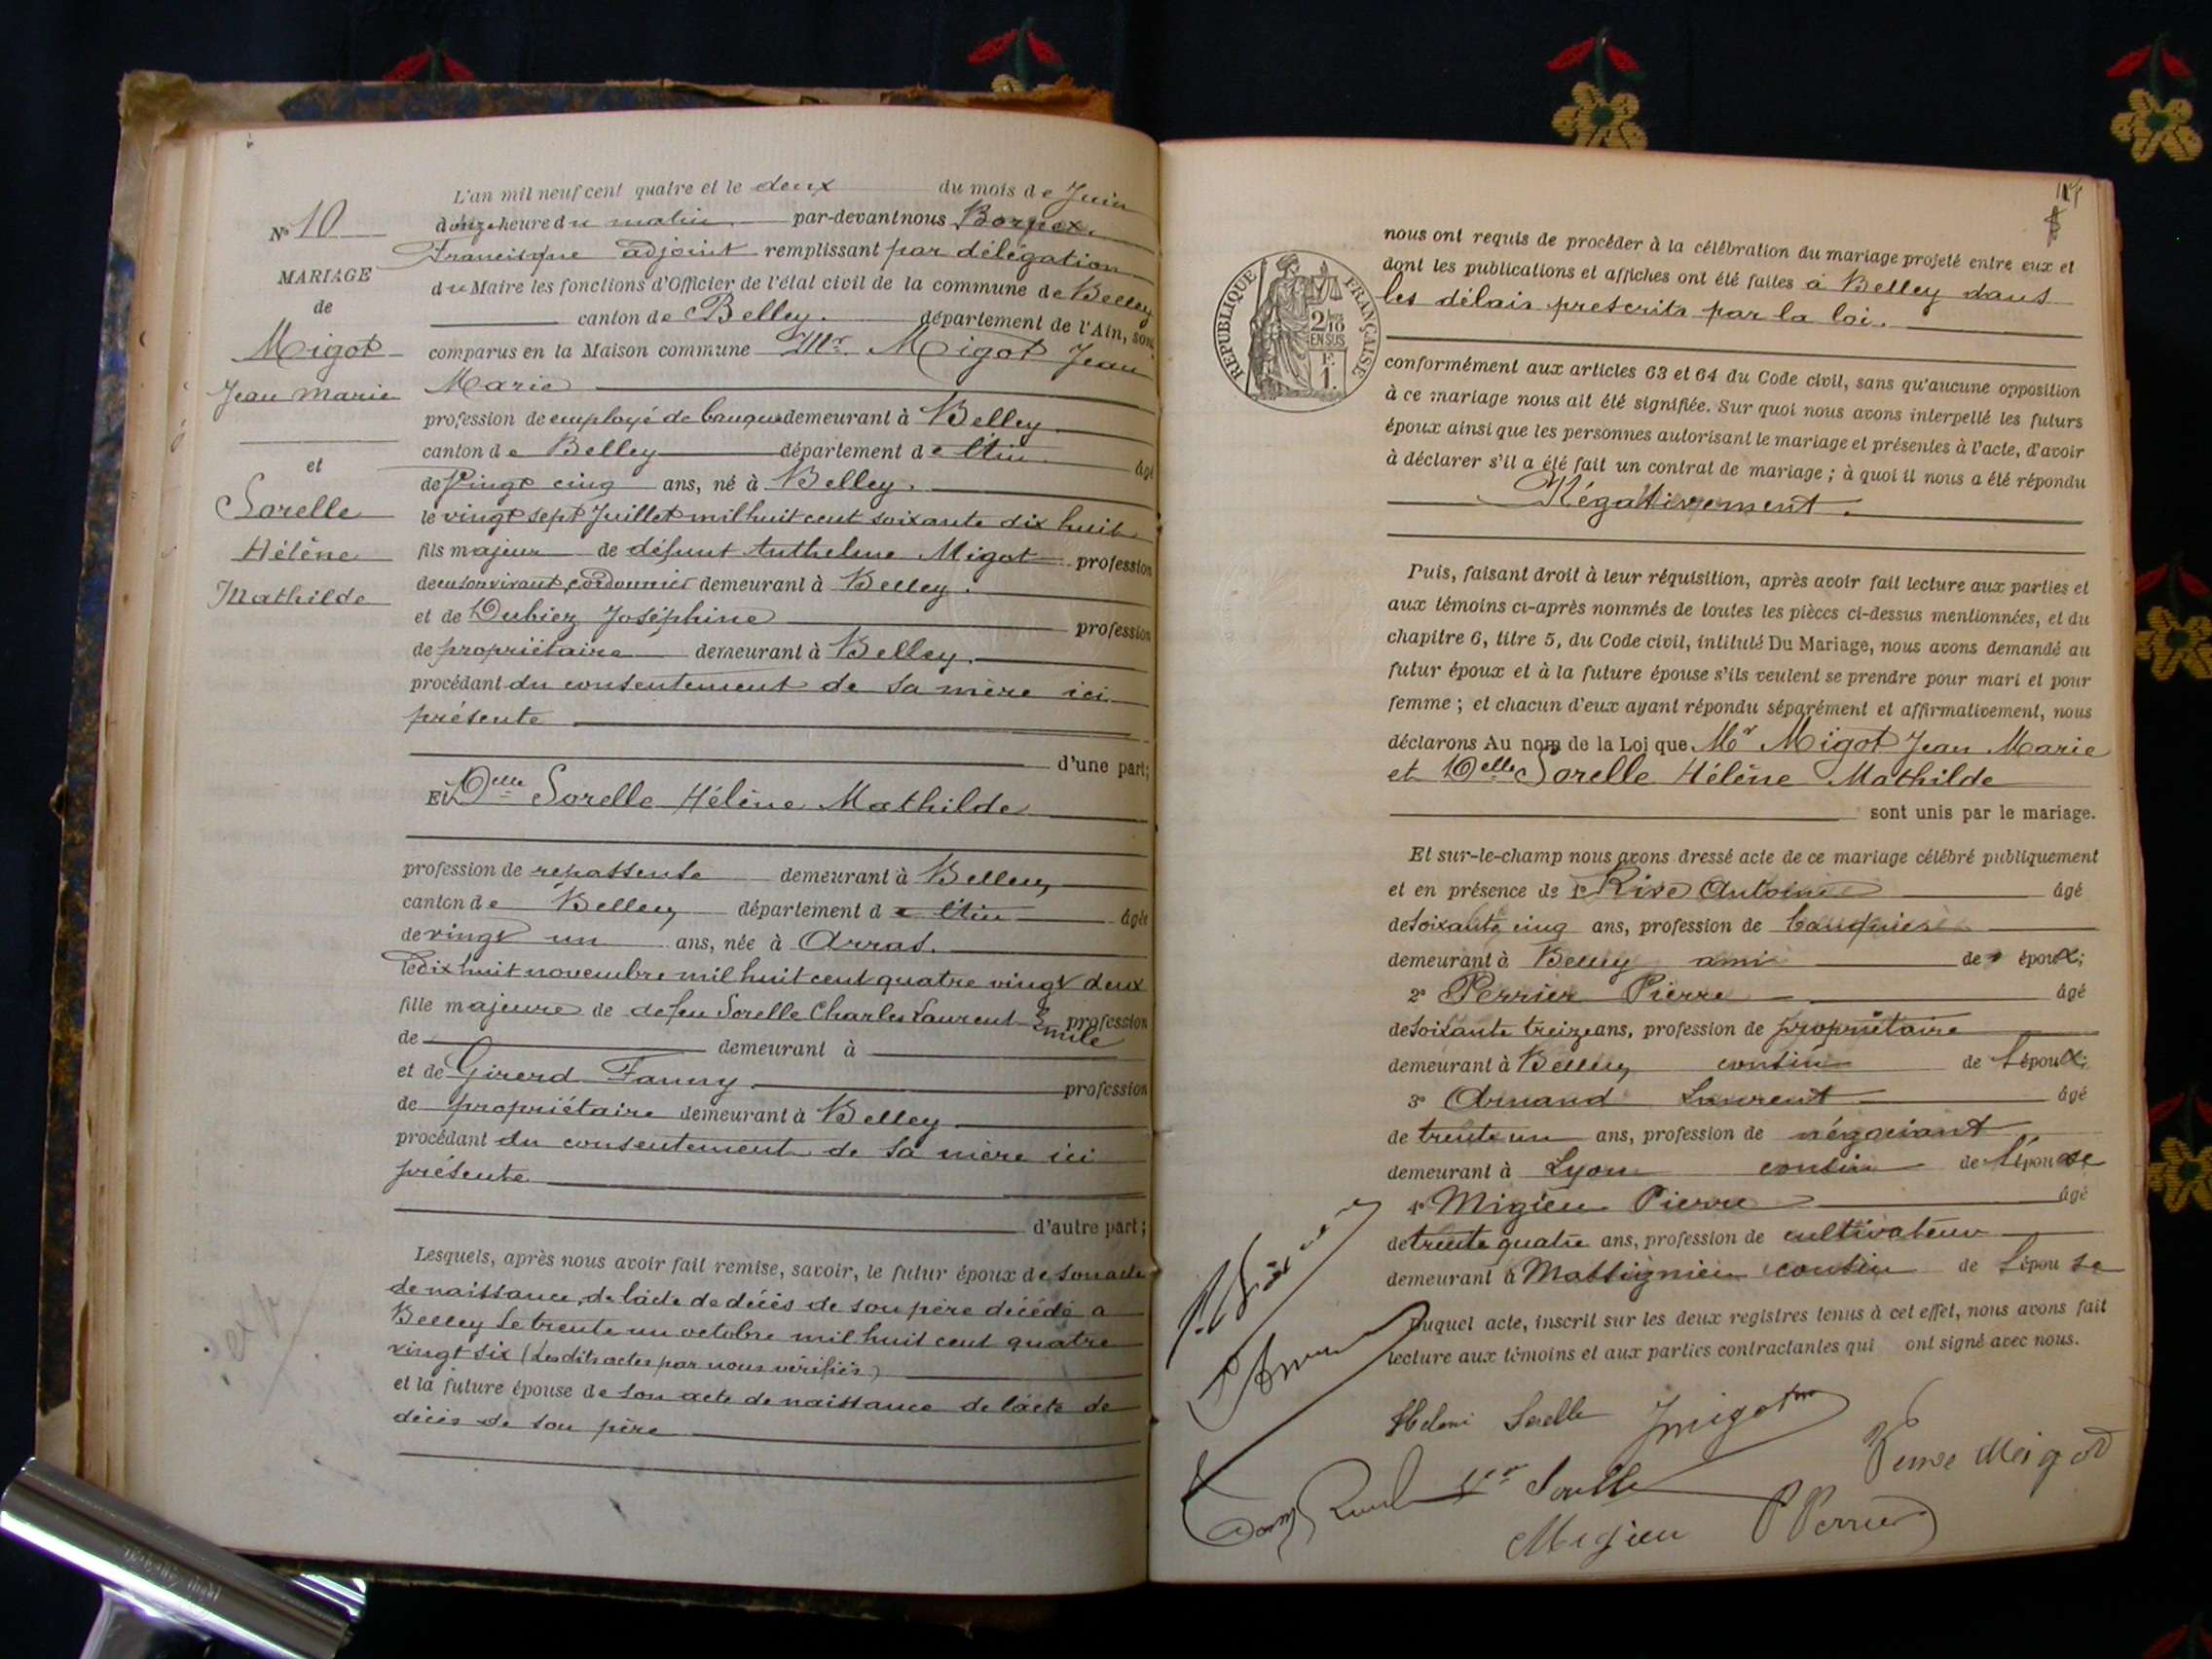 L'an mil neuf cent quatre et le deux du mois de Juin
à onze heure du matin par-devant nous Borgex
Francisque adjoint remplissant par délégation
du Maire les fonctions d'Officier de l'état civil de la commune de Belley
canton de Belley. département de l'Ain, sont
comparus en la Maison commune Mr Migot Jean
Marie
profession de employé de banque demeurant à Belley
canton de Belley département de l'Ain âgé
de Vingt cinq ans, né à Belley.
le vingt sept Juillet mil huit cent soixante dix huit
fils majeur de défunt Anthelme Migot profession
de en son vivant, cordonnier demeurant à Belley.
et de Dubiez Joséphine profession
de propriétaire demeurant à Belley.
procédant du consentement de sa mère ici
présente
d'une part;
Et Delle Sorelle Hélène Mathilde
profession de repasseuse demeurant à Belley
canton de Belley département de l'Ain âgée
de vingt un ans, née à Arras.
le dix huit novembre mil huit cent quatre vingt deux
fille majeure de de feu Sorelle Charles Laurent Emile profession
de demeurant à
et de Girerd Fanny profession
de propriétaire demeurant à Belley
procédant du consentement de sa mère ici
présente
d'autre part;
Lesquels, après nous avoir fait remise, savoir, le futur époux de son acte
de naissance, de l'acte de décès de son père décédé à
Belley le trente un octobre mil huit cent quatre
vingt six (Les dits actes par nous vérifiés)
et la future épouse de son acte de naissance de l'acte de
décès de son père
N° 10
MARIAGE
de
Migot
Jean Marie
et
Sorelle
Hélène
Mathilde
RÉPUBLIQUE FRANÇAISE
2/10
EN SUS
F.
1.
nous ont requis de procéder à la célébration du mariage projeté entre eux et
dont les publications et affiches ont été faites à Belley dans
les délais prescrits par la loi.
conformément aux articles 63 et 64 du Code civil, sans qu'aucune opposition
à ce mariage nous ait été signifiée. Sur quoi nous avons interpellé les futurs
époux ainsi que les personnes autorisant le mariage et présentes à l'acte, d'avoir
à déclarer s'il a été fait un contrat de mariage; à quoi il nous a été répondu
Négativement.
Puis, faisant droit à leur réquisition, après avoir fait lecture aux parties et
aux témoins ci-après nommés de toutes les pièces ci-dessus mentionnées, et du
chapitre 6, titre 5, du Code civil, intitulé Du Mariage, nous avons demandé au
futur époux et à la future épouse s'ils veulent se prendre pour mari et pour
femme; et chacun d'eux ayant répondu séparément et affirmativement, nous
déclarons Au nom de la Loi que Mr Migot Jean Marie
et Delle Sorelle Hélène Mathilde
sont unis par le mariage.
Et sur-le-champ nous avons dressé acte de ce mariage célébré publiquement
et en présence de 1° Rive Antoine âgé
de soixante cinq ans, profession de banquier
demeurant à Belley ami de époux;
2° Perrier Pierre âgé
de soixante treize ans, profession de propriétaire
demeurant à Belley cousin de l'époux;
3° Arnaud Laurent âgé
de trente un ans, profession de négociant
demeurant à Lyon cousin de l'épouse
4° Migieu Pierre âgé
de trente quatre ans, profession de cultivateur
demeurant à Massignieu cousin de l'épouse
Duquel acte, inscrit sur les deux registres tenus à cet effet, nous avons fait
lecture aux témoins et aux parties contractantes qui ont signé avec nous.
Helene Sorelle JMigot
Veuve Migot
Sorelle
Migieu P Perrier